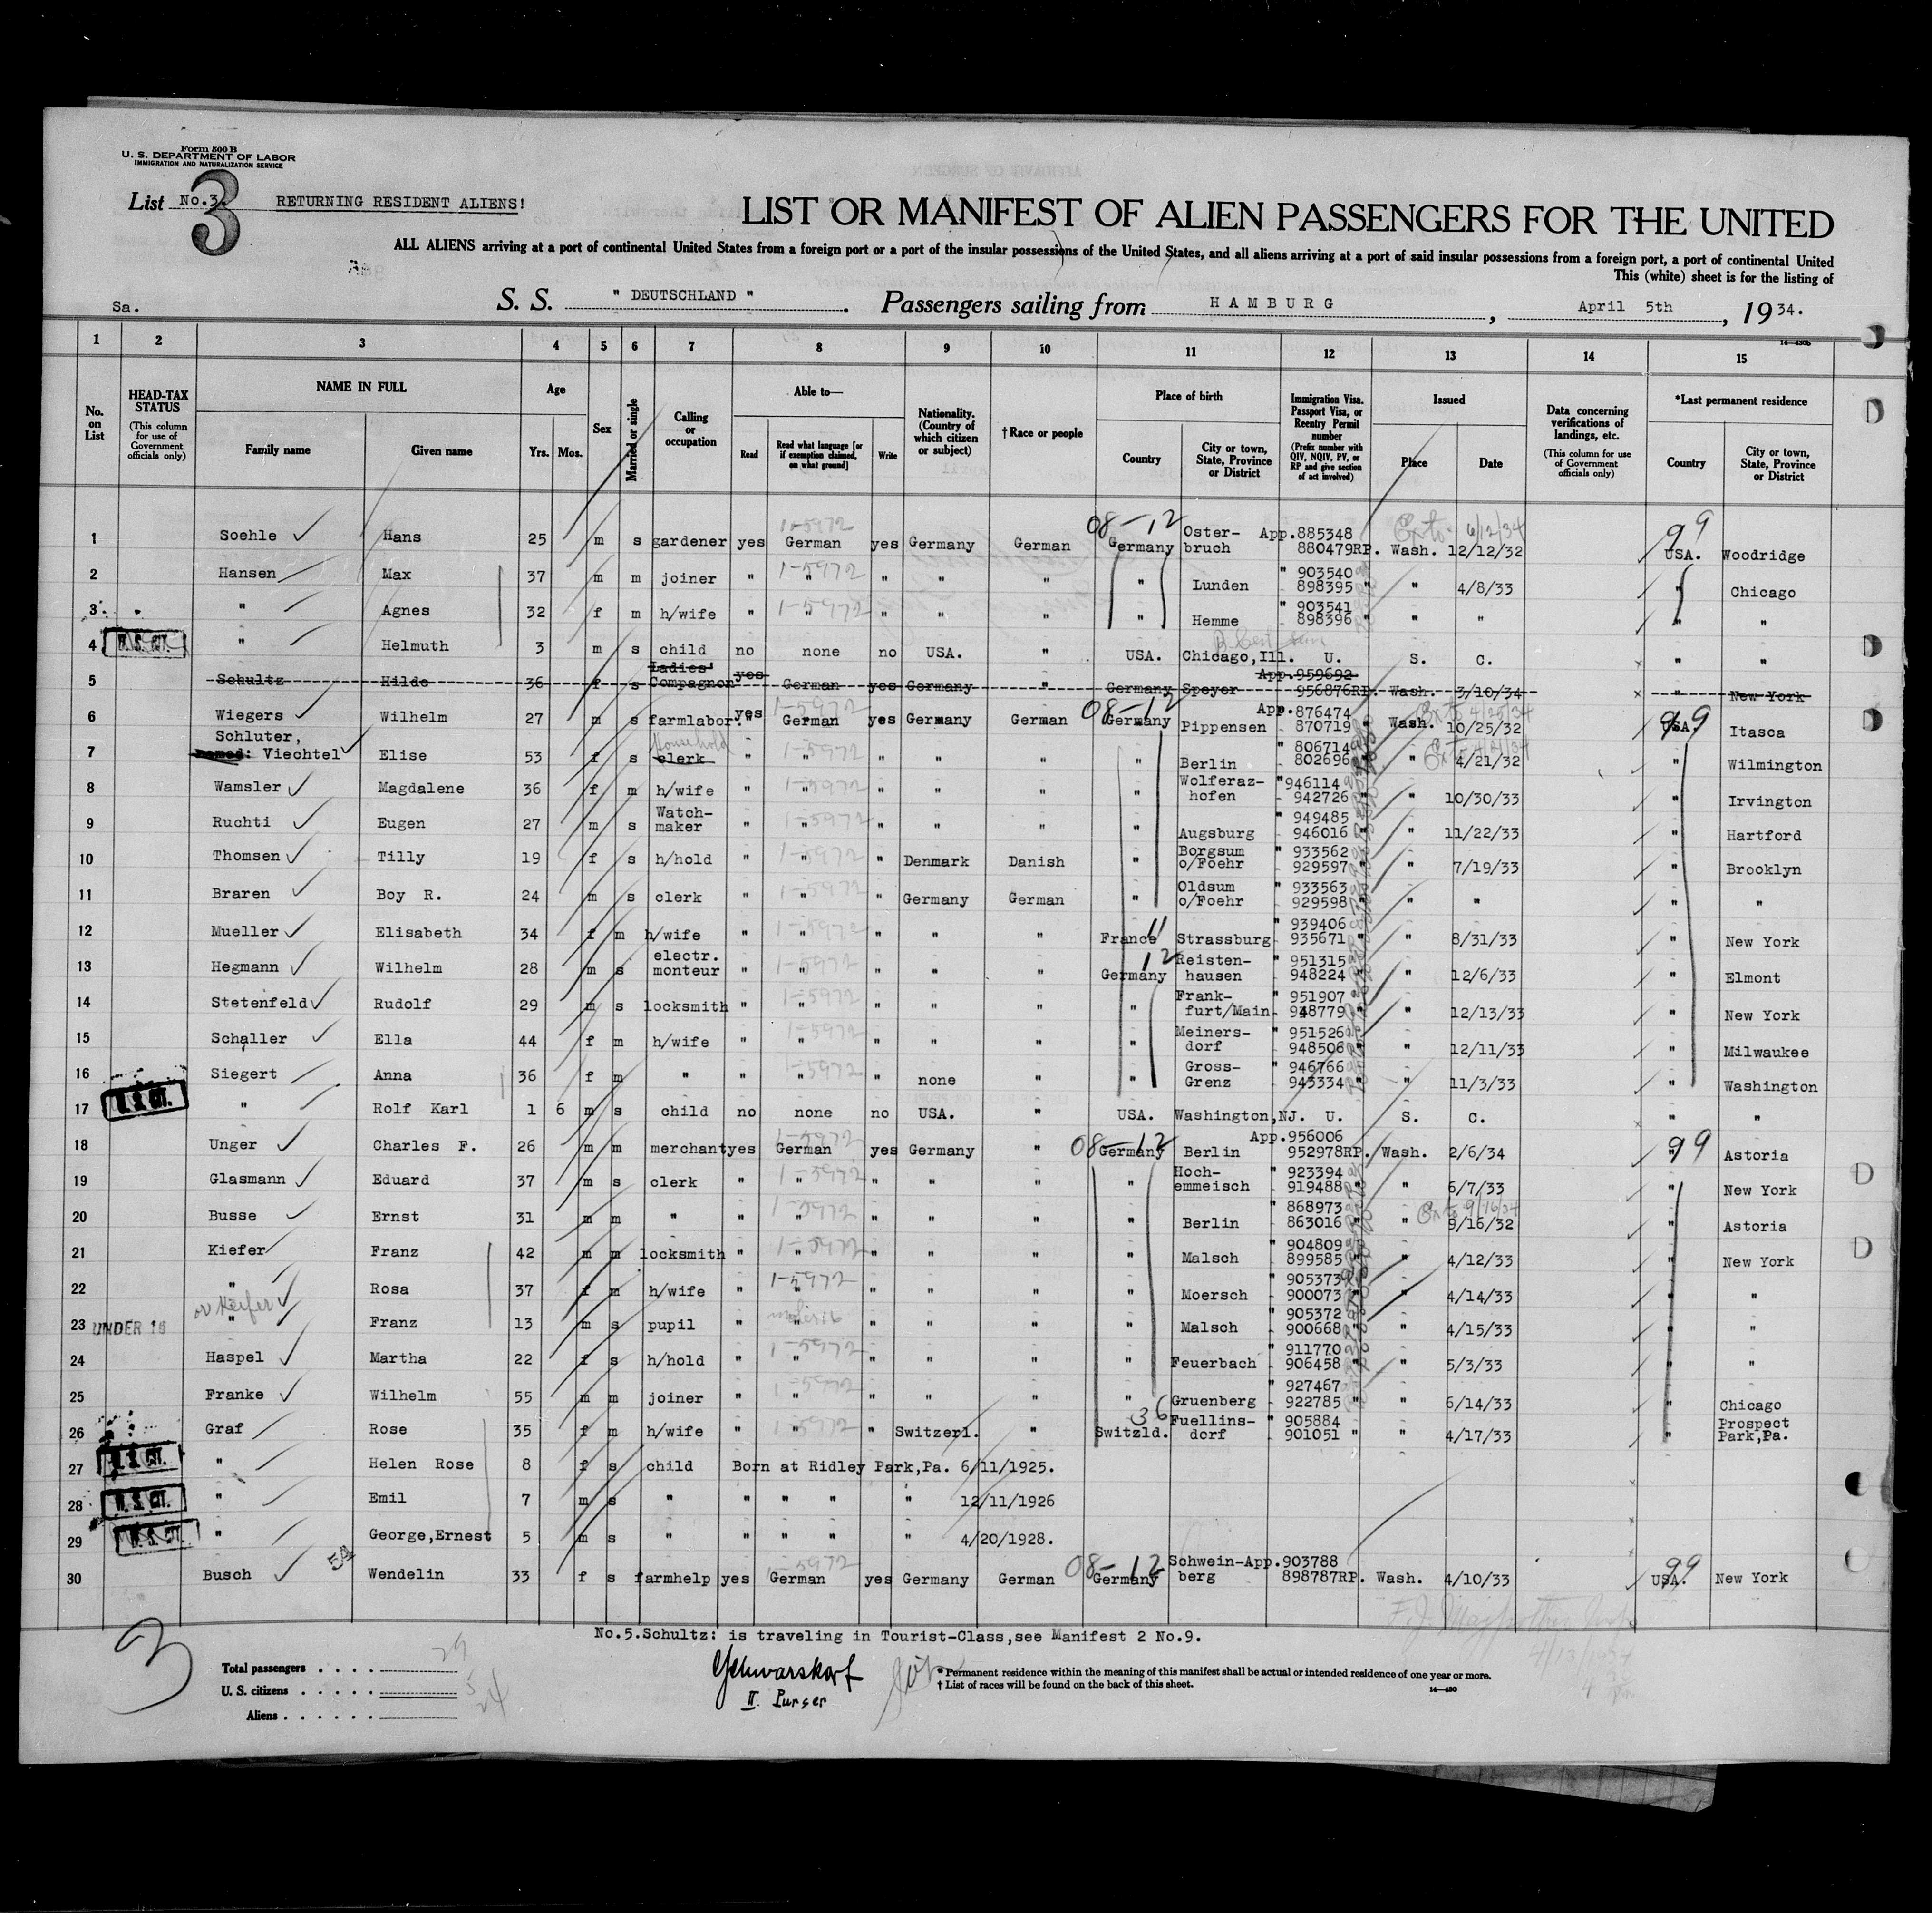 Form 500 B
U. S. DEPARTMENT OF LABOR
IMMIGRATION AND NATURALIZATION SERVICE
List No.3. RETURNING RESIDENT ALIENS!
3
LIST OR MANIFEST OF ALIEN PASSENGERS FOR THE UNITED
ALL ALIENS arriving at a port of continental United States from a foreign port or a port of the insular possessions of the United States, and all aliens arriving at a port of said insular possessions from a foreign port, a port of continental United
This (white) sheet is for the listing of
Sa. S. S. " DEUTSCHLAND ". Passengers sailing from HAMBURG, April 5th, 1934.
14—430b
1 2 3 4 5 6 7 8 9 10 11 12 13 14 15
No. on List
HEAD-TAX STATUS (This column for use of Government officials only)
NAME IN FULL Family name Given name
Age Yrs. Mos.
Sex
Married or single
Calling or occupation
Able to— Read Read what language [or if exemption claimed, on what ground] Write
Nationality. (Country of which citizen or subject)
† Race or people
Place of birth Country City or town, State, Province or District
Immigration Visa. Passport Visa, or Reentry Permit number (Prefix number with QIV, NQIV, PV, or RP and give section of act involved)
Issued Place Date
Data concerning verifications of landings, etc. (This column for use of Government officials only)
*Last permanent residence Country City or town, State, Province or District
1 Soehle Hans 25 m s gardener yes 1-5972 German yes Germany German 08-12 Germany Oster-bruch App.885348 880479RP. Wash. 12/12/32 Ex to 6/12/34 99 USA. Woodridge
2 Hansen Max 37 m m joiner " 1-5972 " " " " " Lunden " 903540 898395 " " 4/8/33 " Chicago
3 " Agnes 32 f m h/wife " 1-5972 " " " " " Hemme " 903541 898396 " " " " "
4 U.S. CIT. " Helmuth 3 m s child no none no USA. " USA. Chicago,Ill. U. S. C. " "
5 Schultz Hilde 36 f s Ladies' Compagnon yes German yes Germany " Germany Speyer App.959692 956876RP. Wash. 3/10/34 " New York
6 Wiegers Wilhelm 27 m s farmlabor. yes 1-5972 German yes Germany German 08-12 Germany Pippensen App.876474 870719 " Wash. 10/25/32 Ex to 4/25/34 99 USA. Itasca
7 Schluter, named: Viechtel Elise 53 f s household clerk " 1-5972 " " " " " Berlin " 806714 802696 " " 4/21/32 " Wilmington
8 Wamsler Magdalene 36 f m h/wife " 1-5972 " " " " " Wolferaz-hofen "946114 942726 " " 10/30/33 " Irvington
9 Ruchti Eugen 27 m s Watch-maker " 1-5972 " " " " " Augsburg " 949485 946016 " " 11/22/33 " Hartford
10 Thomsen Tilly 19 f s h/hold " 1-5972 " " Denmark Danish " Borgsum o/Foehr " 933562 929597 " " 7/19/33 " Brooklyn
11 Braren Boy R. 24 m s clerk " 1-5972 " " Germany German " Oldsum o/Foehr " 933563 929598 " " " " "
12 Mueller Elisabeth 34 f m h/wife " 1-5972 " " " " France 11 Strassburg " 939406 935671 " " 8/31/33 " New York
13 Hegmann Wilhelm 28 m s electr. monteur " 1-5972 " " " " 12 Germany Reisten-hausen " 951315 948224 " " 12/6/33 " Elmont
14 Stetenfeld Rudolf 29 m s locksmith " 1-5972 " " " " " Frank-furt/Main " 951907 948779 " " 12/13/33 " New York
15 Schaller Ella 44 f m h/wife " 1-5972 " " " " " Meiners-dorf " 951526 948506 " " 12/11/33 " Milwaukee
16 Siegert Anna 36 f m " " 1-5972 " " none " " Gross-Grenz " 946766 943334 " " 11/3/33 " Washington
17 U.S. CIT. " Rolf Karl 1 6 m s child no none no USA. " USA. Washington,NJ. U. S. C. " "
18 Unger Charles F. 26 m m merchant yes 1-5972 German yes Germany " 08-12 Germany Berlin App.956006 952978RP. Wash. 2/6/34 99 " Astoria
19 Glasmann Eduard 37 m s clerk " 1-5972 " " " " " Hoch-emmeisch " 923394 919488 " " 6/7/33 " New York
20 Busse Ernst 31 m m " " 1-5972 " " " " " Berlin " 868973 863016 " " 9/16/32 Ex to 9/16/34 " Astoria
21 Kiefer Franz 42 m m locksmith " 1-5972 " " " " " Malsch " 904809 899585 " " 4/12/33 " New York
22 " Rosa 37 f m h/wife " 1-5972 " " " " " Moersch " 905373 900073 " " 4/14/33 " "
or Keifer
23 UNDER 16 " Franz 13 m s pupil " under 16 " " " " " Malsch " 905372 900668 " " 4/15/33 " "
24 Haspel Martha 22 f s h/hold " 1-5972 " " " " " Feuerbach " 911770 906458 " " 5/3/33 " "
25 Franke Wilhelm 55 m m joiner " 1-5972 " " " " " Gruenberg " 927467 922785 " " 6/14/33 " Chicago
26 Graf Rose 35 f m h/wife " 1-5972 " " Switzerl. " 36 Switzld. Fuellins-dorf " 905884 901051 " " 4/17/33 " Prospect Park,Pa.
27 U.S. CIT. " Helen Rose 8 f s child Born at Ridley Park,Pa. 6/11/1925.
28 U.S. CIT. " Emil 7 m s " " " " " 12/11/1926
29 U.S. CIT. " George,Ernest 5 m s " " " " " 4/20/1928.
30 Busch Wendelin 33 f s farmhelp yes 1-5972 German yes Germany German 08-12 Germany Schwein-berg App.903788 898787RP. Wash. 4/10/33 99 USA. New York
No.5.Schultz: is traveling in Tourist-Class,see Manifest 2 No.9.
3
Total passengers . . . . 29
U. S. citizens . . . . . 5
Aliens . . . . . . 24
II. Purser
* Permanent residence within the meaning of this manifest shall be actual or intended residence of one year or more.
† List of races will be found on the back of this sheet.
14—430
4/13/1934